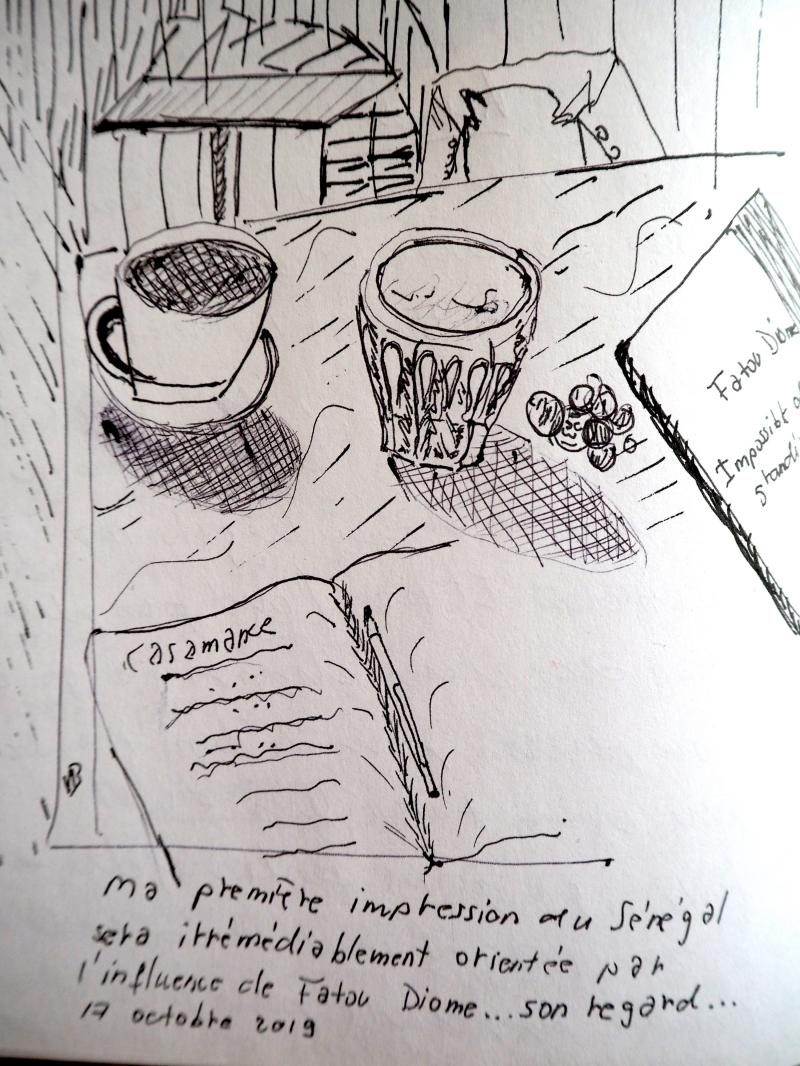 Fatou Diome
Impossible
grandi
Casamance
Ma première impression du Sénégal
sera irrémédiablement orientée par
l'influence de Fatou Diome...son regard...
17 octobre 2019